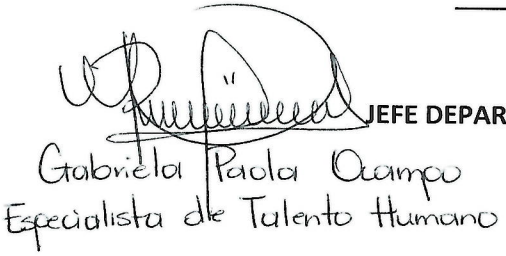 JEFE DEPAR
Gabriela Paola Ocampo
Especialista de Talento Humano